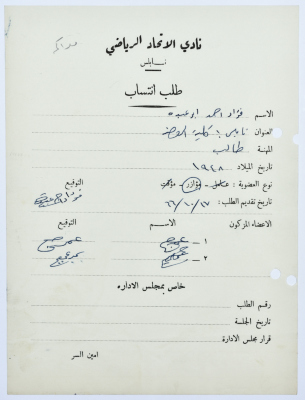 نادي الاتحاد الرياضي
نابلس
طلب انتساب
الاسم فؤاد احمد ابو عيده
العنوان نابلس : كلية
المهنة طالب
تاريخ الميلاد ١٩٤٨
نوع العضوية : عامل - مؤازر - مؤقت التوقيع
تاريخ تقديم الطلب : ٦٦/١٠/١٧
الاعضاء المزكون الاسم التوقيع
١ -
٢ -
خاص بمجلس الاداره
رقم الطلب
تاريخ الجلسة
قرار مجلس الادارة
امين السر